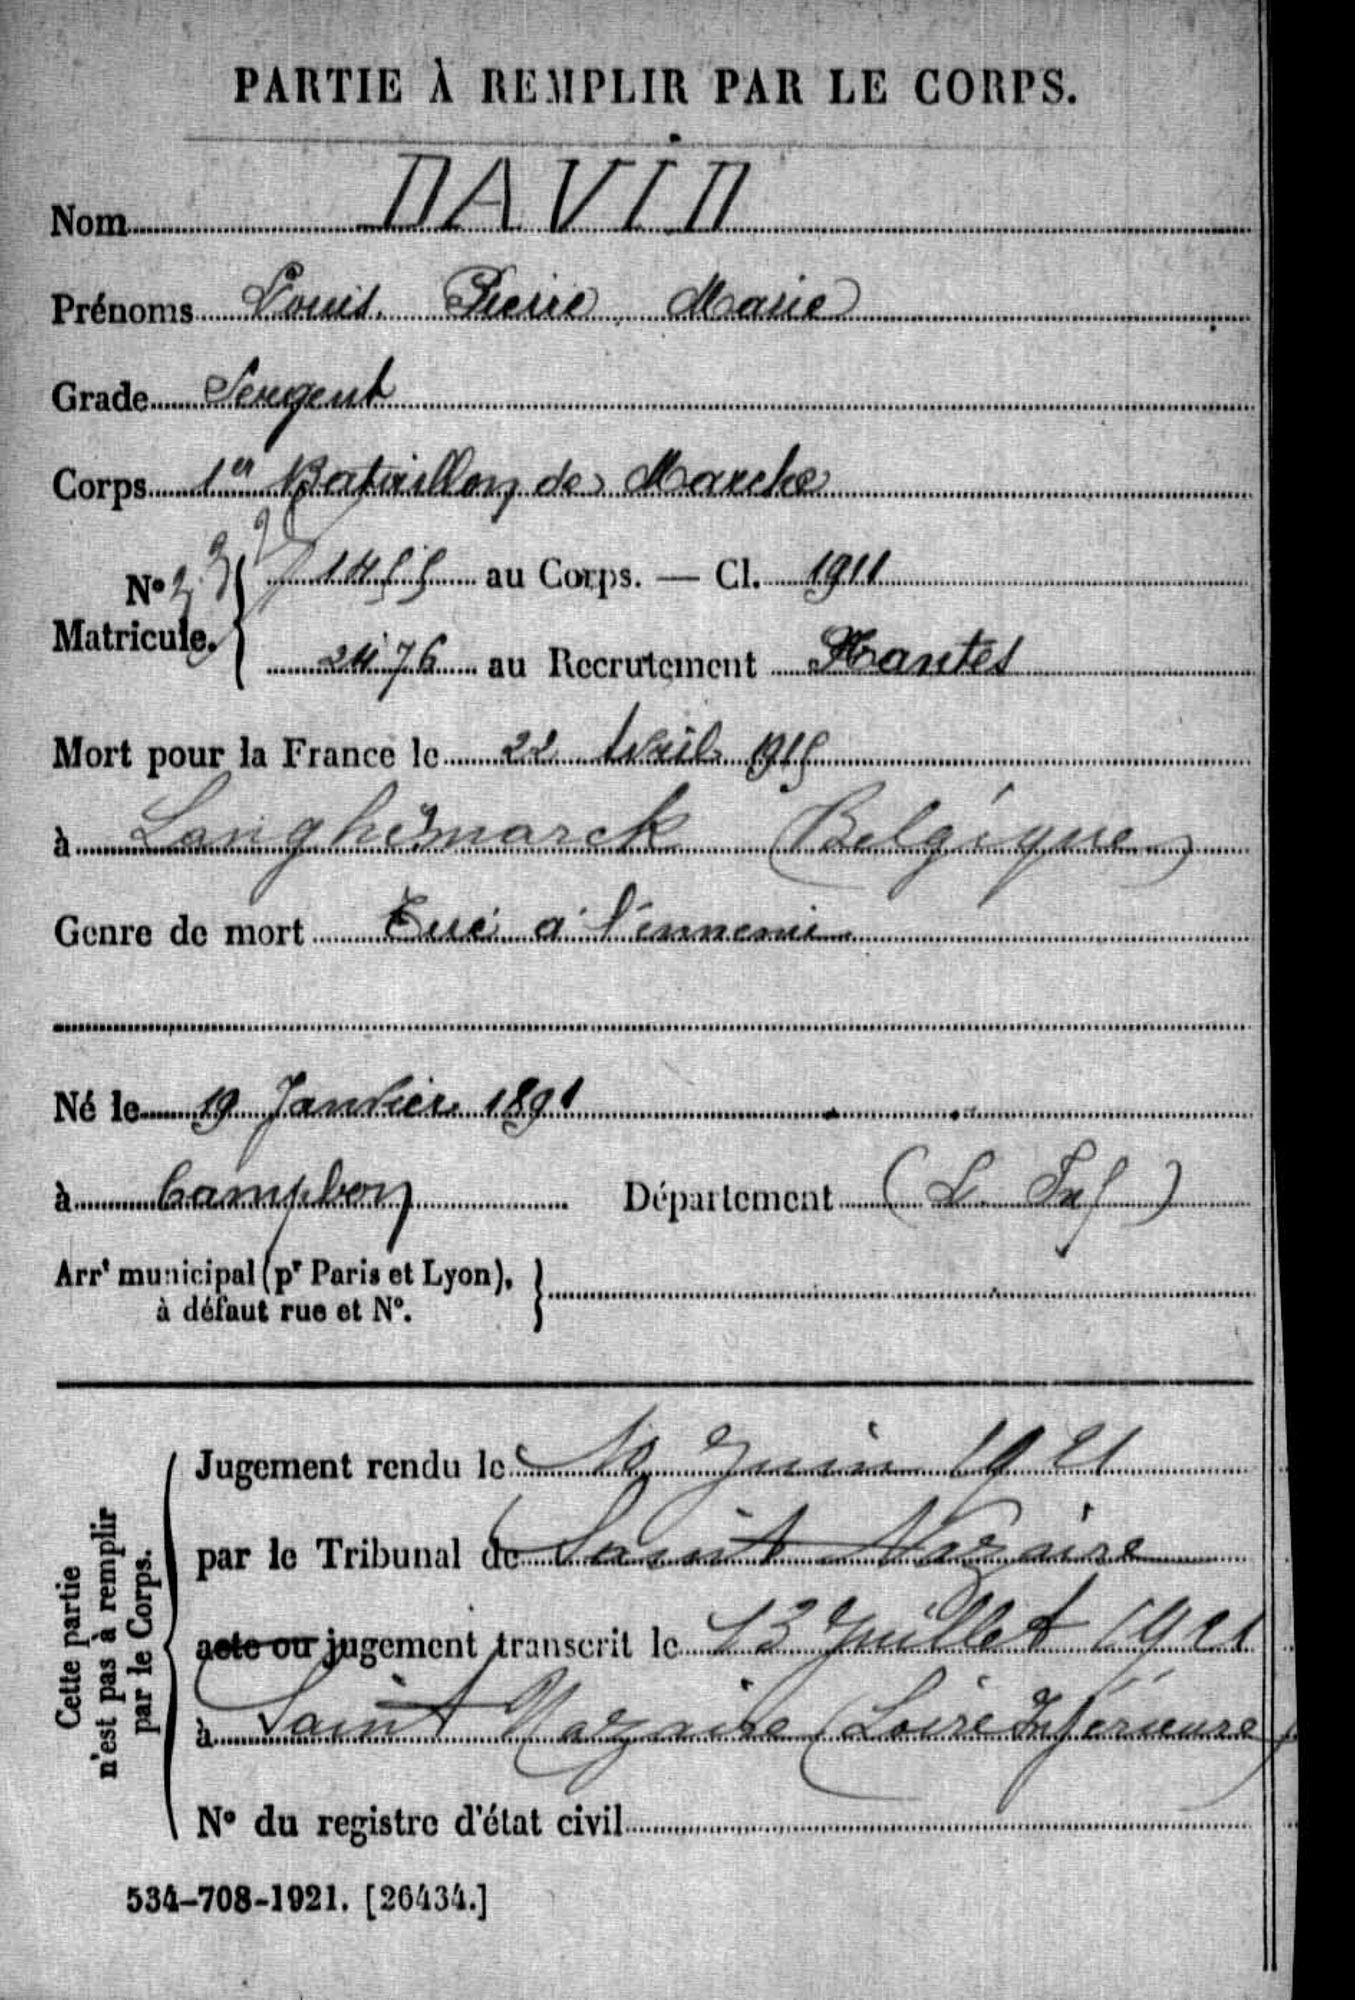 PARTIE À REMPLIR PAR LE CORPS.
Nom DAVID
Prénoms Louis, Pierre Marie
Grade Sergent
Corps 1er Bataillon de Marche
No Matricule. { 1455 au Corps. — Cl. 1911
2476 au Recrutement Nantes
Mort pour la France le 22 Avril 1915
à Langhemarck (Belgique)
Genre de mort Tué à l'ennemi
Né le 19 Janvier 1891
à Campbon Département (L. Inf)
Arrt municipal (pr Paris et Lyon), }
à défaut rue et No.
Cette partie
n'est pas à remplir
par le Corps.
Jugement rendu le 10 Juin 1921
par le Tribunal de Saint Nazaire
acte ou jugement transcrit le 13 Juillet 1921
à Saint Nazaire (Loire Inférieure)
No du registre d'état civil
534-708-1921. [26434.]